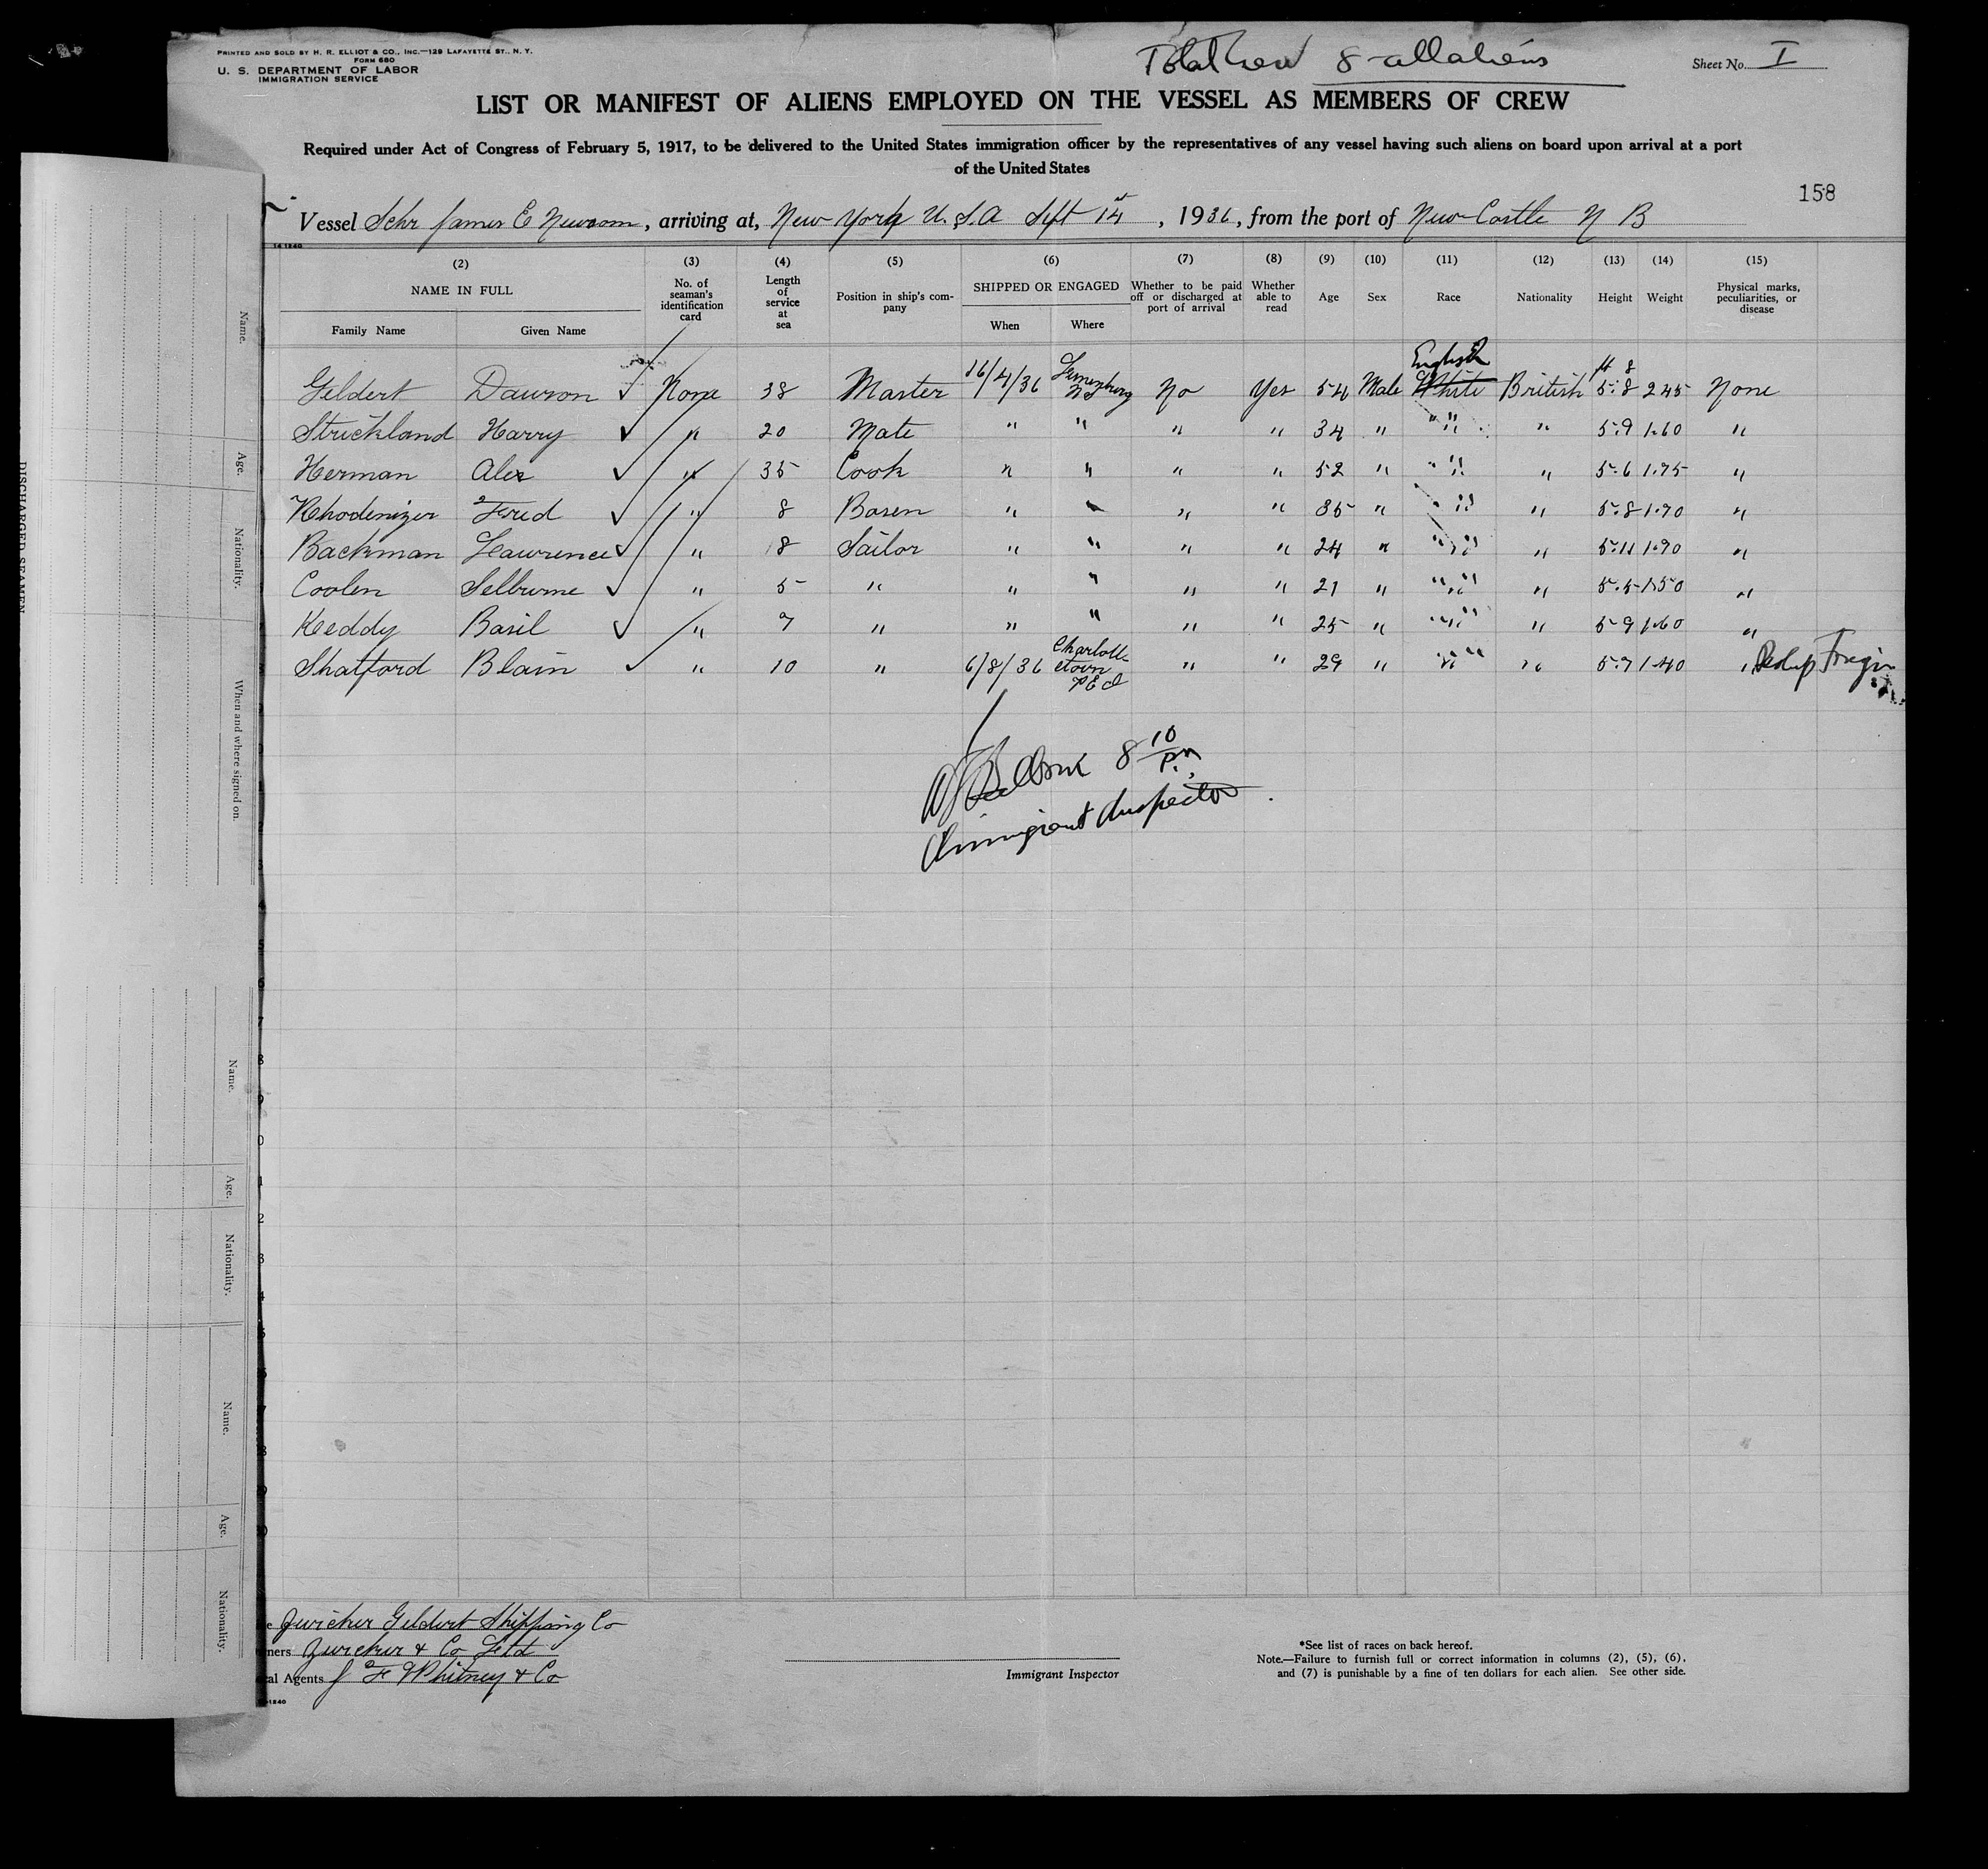 PRINTED AND SOLD BY H. R. ELLIOT & CO., INC.—129 LAFAYETTE ST., N. Y.
FORM 680
U. S. DEPARTMENT OF LABOR
IMMIGRATION SERVICE
Total Crew 8 - all aliens
Sheet No. I
LIST OR MANIFEST OF ALIENS EMPLOYED ON THE VESSEL AS MEMBERS OF CREW
Required under Act of Congress of February 5, 1917, to be delivered to the United States immigration officer by the representatives of any vessel having such aliens on board upon arrival at a port
of the United States
158
Vessel Schr James E Newsom, arriving at, New York U.S.A Sept 14, 1936, from the port of New Castle N B
14 1240
(2) (3) (4) (5) (6) (7) (8) (9) (10) (11) (12) (13) (14) (15)
NAME IN FULL
Family Name Given Name
No. of seaman's identification card
Length of service at sea
Position in ship's company
SHIPPED OR ENGAGED
When Where
Whether to be paid off or discharged at port of arrival
Whether able to read
Age Sex Race Nationality Height Weight
Physical marks, peculiarities, or disease
English
Geldert Dawson None 38 Master 16/4/36 Lunenburg NS No Yes 54 Male White British 5.8 245 None
Strickland Harry " 20 Mate " " " " 34 " " " 5.9 1.60 "
Herman Alex " 35 Cook " " " " 52 " " " 5.6 1.75 "
Rhodenizer Fred " 8 Bosen " " " " 35 " " " 5.8 1.70 "
Backman Lawrence " 8 Sailor " " " " 24 " " " 5.11 1.90 "
Coolen Selburne " 5 " " " " " 21 " " " 5.5 1.50 "
Keddy Basil " 7 " " " " " 25 " " " 5 9 1.60 "
Shatford Blain " 10 " 6/8/36 Charlottetown P E I " " 29 " " " 5.7 1.40 "
8 10 P.M.
Immigrant Inspector
Zwicker Geldert Shipping Co
ners Zwicker & Co Ltd
al Agents J F Whitney & Co
1240
Immigrant Inspector
*See list of races on back hereof.
Note.—Failure to furnish full or correct information in columns (2), (5), (6),
and (7) is punishable by a fine of ten dollars for each alien. See other side.
DISCHARGED SEAMEN
Name.
Age.
Nationality.
When and where signed on.
Name.
Age.
Nationality.
Name.
Age.
Nationality.